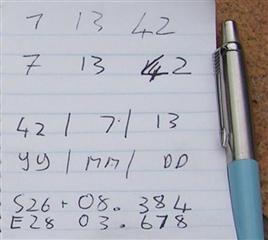 7 13 42
7 13 42
42 / 7 / 13
yy / MM / DD
S26 + 08. 384
E28 03. 678